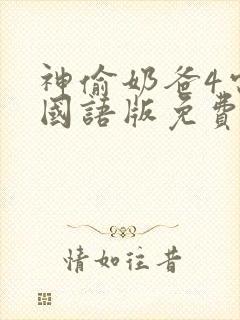 神偷奶爸4
國語版免費
情如往昔